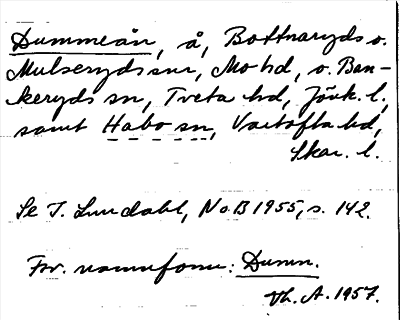 Dummeån, å, Bottnaryds o.
Mulseryds snr, Mo hd, o. Ban-
keryds sn, Tveta hd, Jönk. l.,
samt Habo sn, Vartofta hd,
Skar. l.
Se I. Lundahl, NoB 1955, s. 142.
Fsv. namnform: Dumn.
Vh. A. 1957.